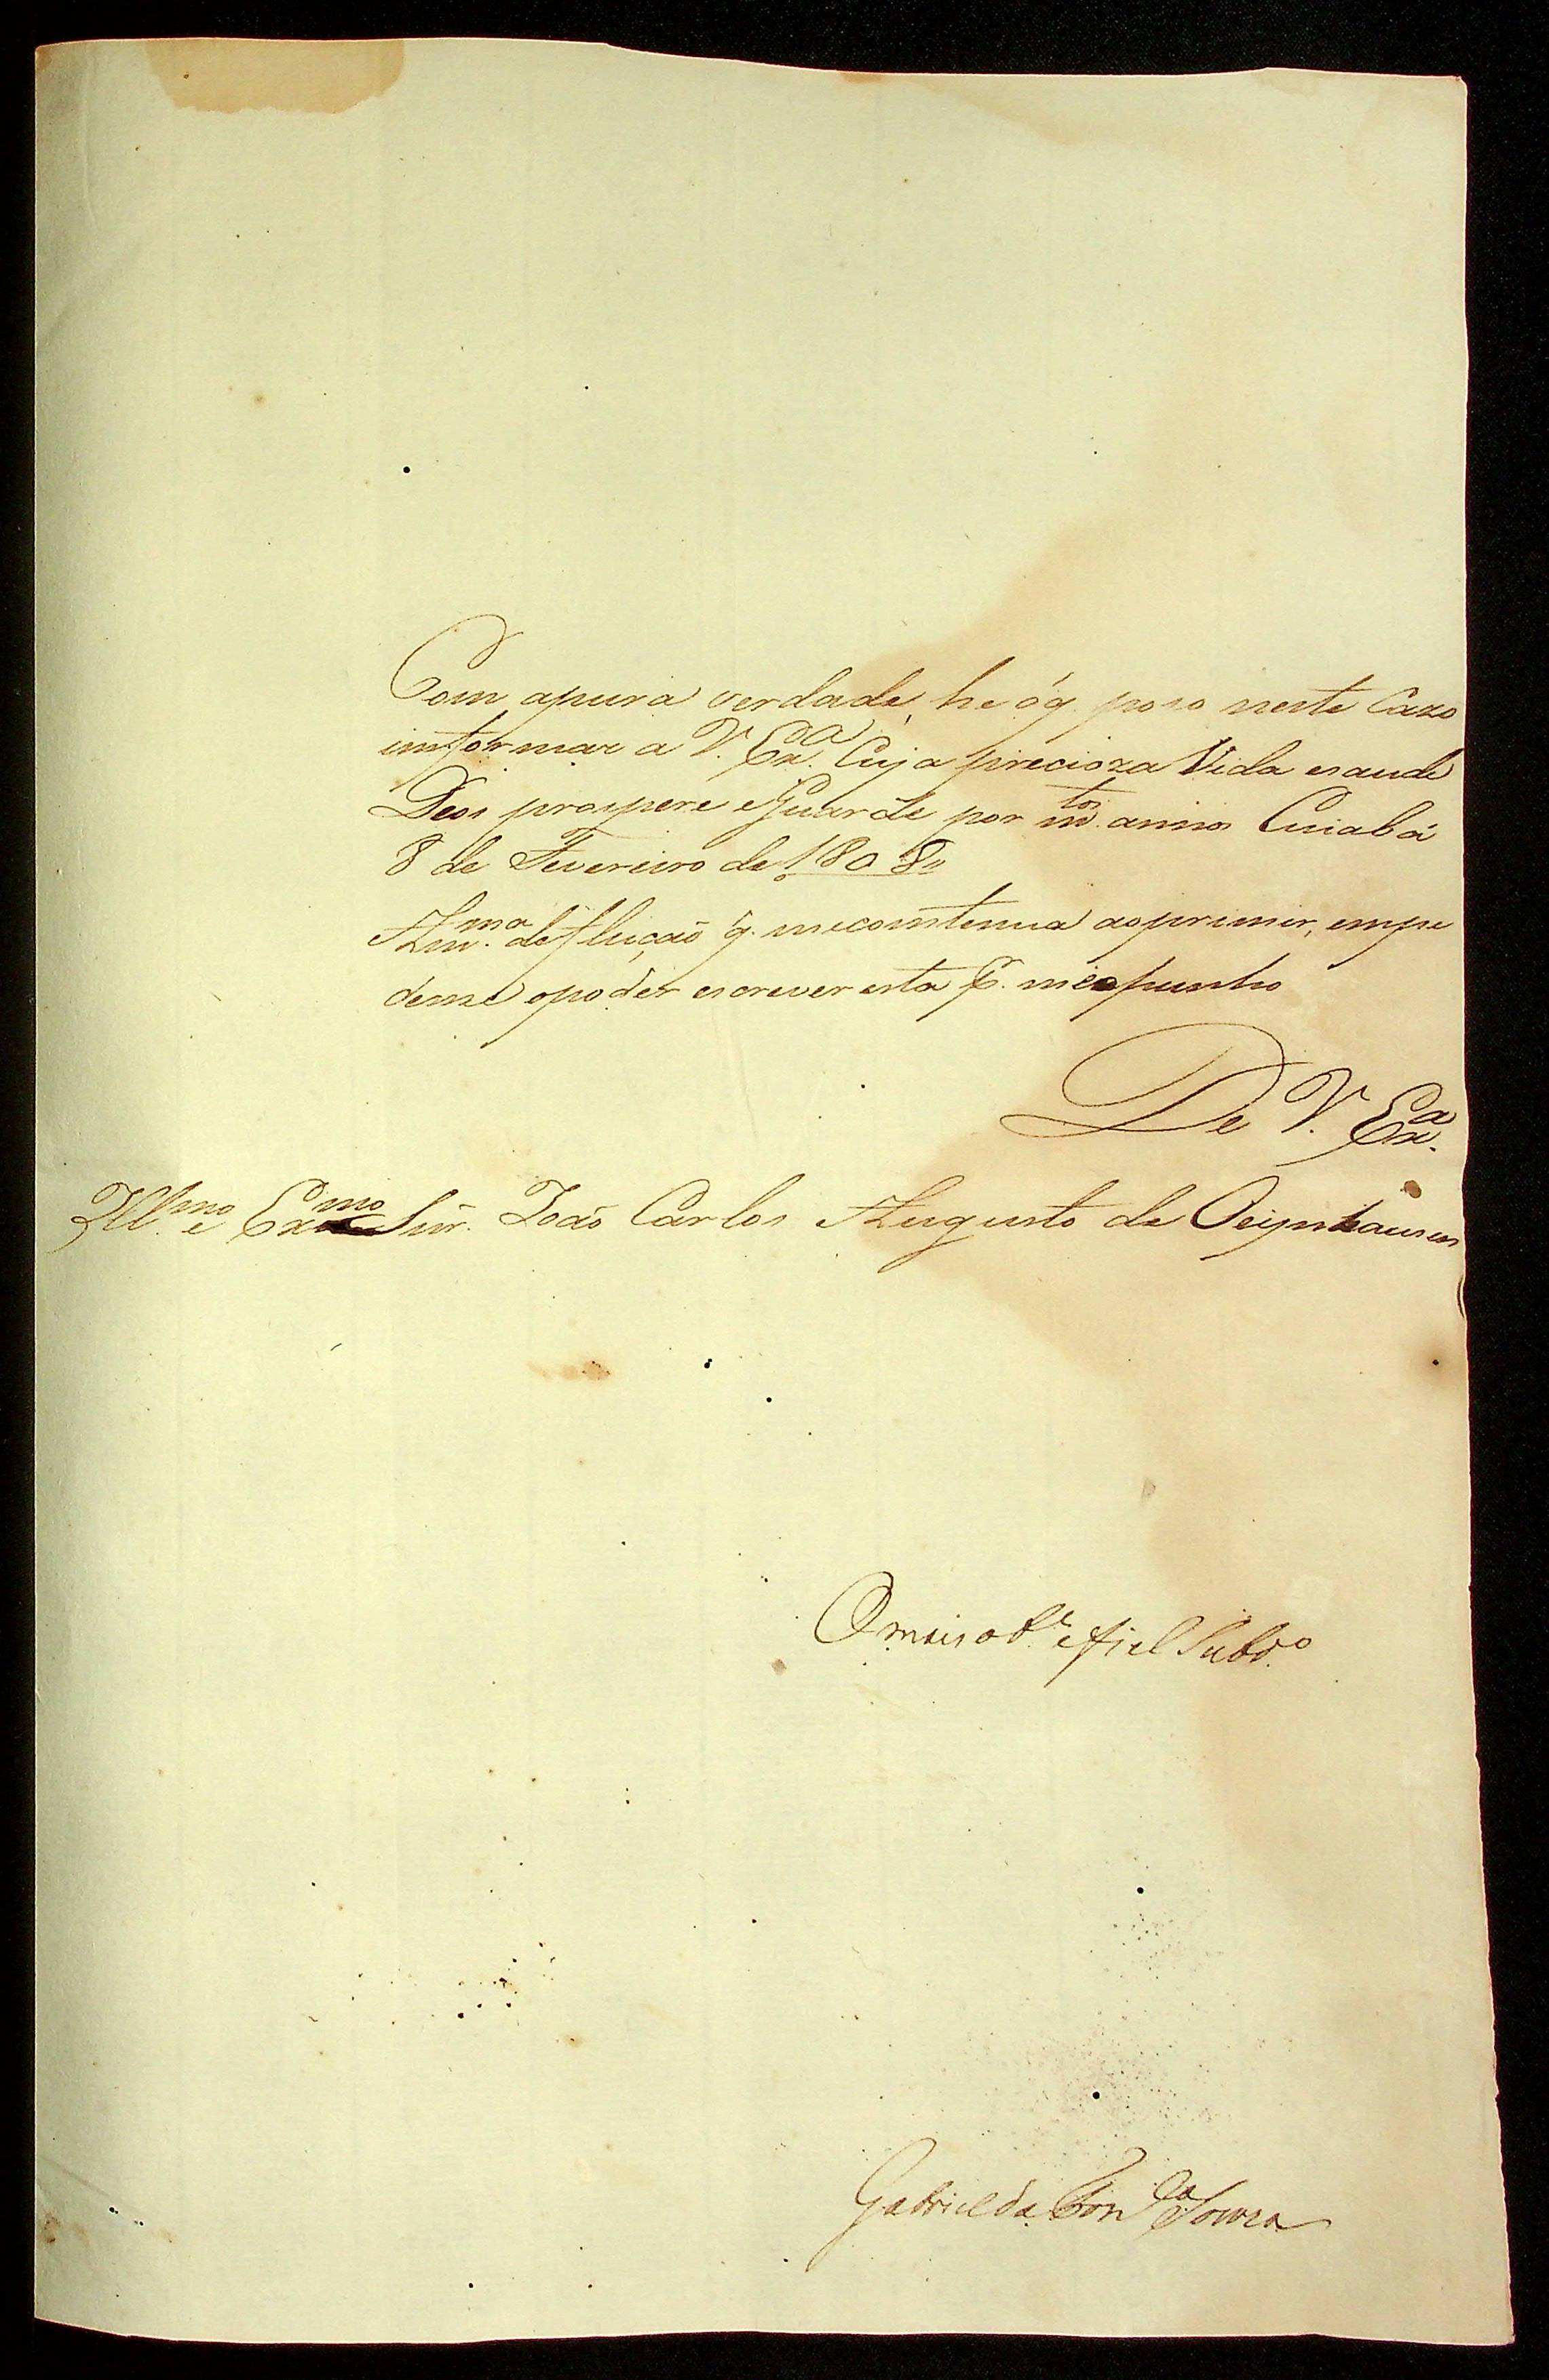 Com apura verdade, he óq. poso neste Cazo
imformar a V. Exa. Cuja precioza Vida esaude
Deos prospere eGuarde por mtos. annos Cuiabá
8 de Fevereiro de 1808,,
Amma. defluçaõ q̃. mecomtenua aoprimir, empe
deme opoder escrever esta P. meopunho
De V. Exa.
Illmo. e Exmo Snr. Joaõ Carlos Augusto de Oeijnhausen
Omais obe. efiel Subdo.
Gabriel da Fonca Souza